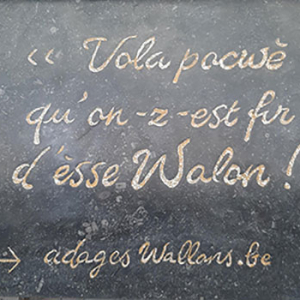 « Vola pocwè
qu'on-z-est fir
d'èsse Walon !
→ adages Wallons.be